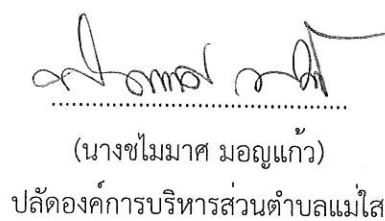 (นางชไมมาศ มอญแก้ว)
ปลัดองค์การบริหารส่วนตำบลแม่ใส